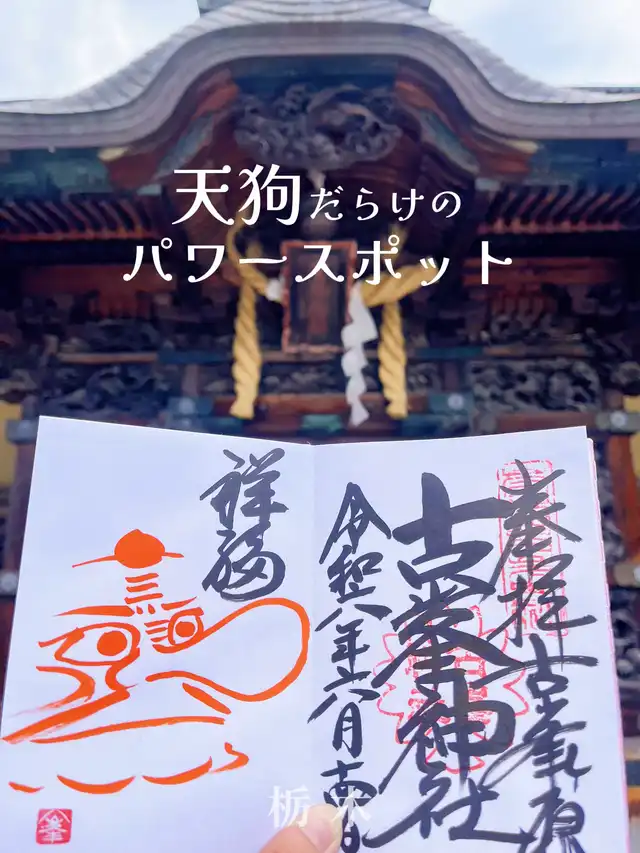 天狗だらけの
パワースポット
奉拝 古峯原
古峯神社
令和八年六月
祥福
栃木